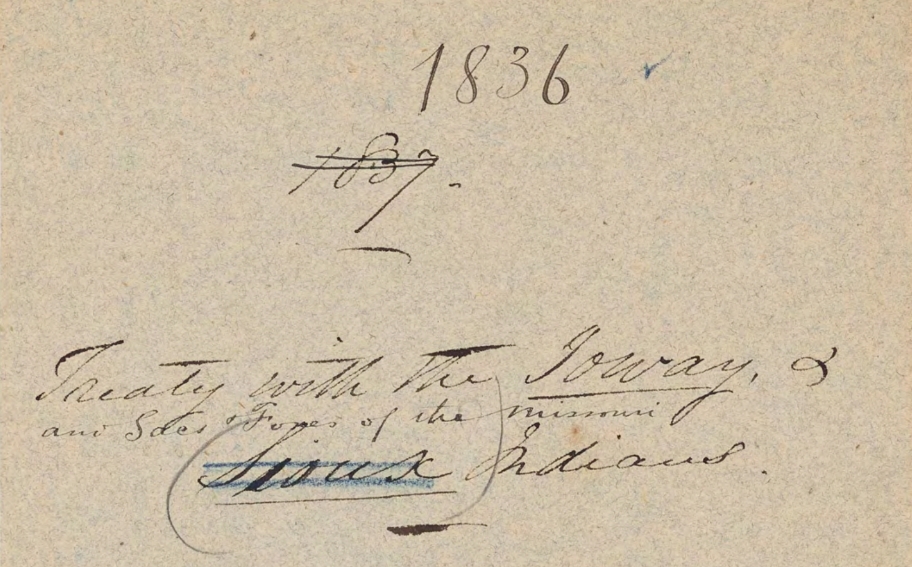 1836
1837.
Treaty with the Ioway, &
and Sacs & Foxes of the missouri
Sioux Indians.